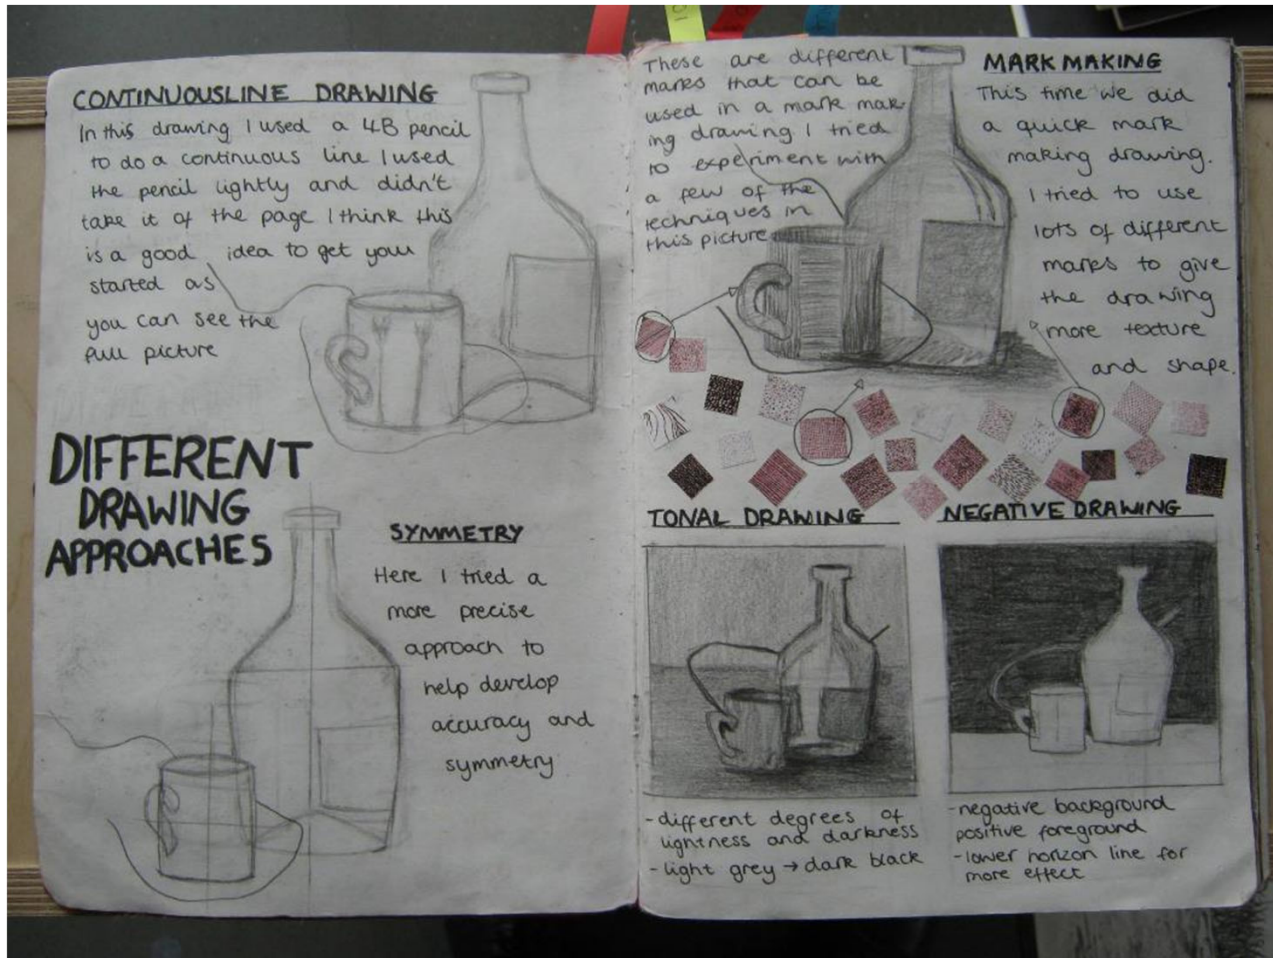 CONTINUOUSLINE DRAWING
In this drawing I used a 4B pencil
to do a continuous line I used
the pencil lightly and didn't
take it of the page I think this
is a good idea to get you
started as
you can see the
full picture
DIFFERENT
DRAWING
APPROACHES
SYMMETRY
Here I tried a
more precise
approach to
help develop
accuracy and
symmetry
These are different
marks that can be
used in a mark mak-
ing drawing I tried
to experiment with
a few of the
techniques in
this picture
MARK MAKING
This time we did
a quick mark
making drawing.
I tried to use
lots of different
marks to give
the drawing
more texture
and shape.
TONAL DRAWING
- different degrees of
lightness and darkness
- light grey → dark black
NEGATIVE DRAWING
- negative background
positive foreground
- lower horizon line for
more effect